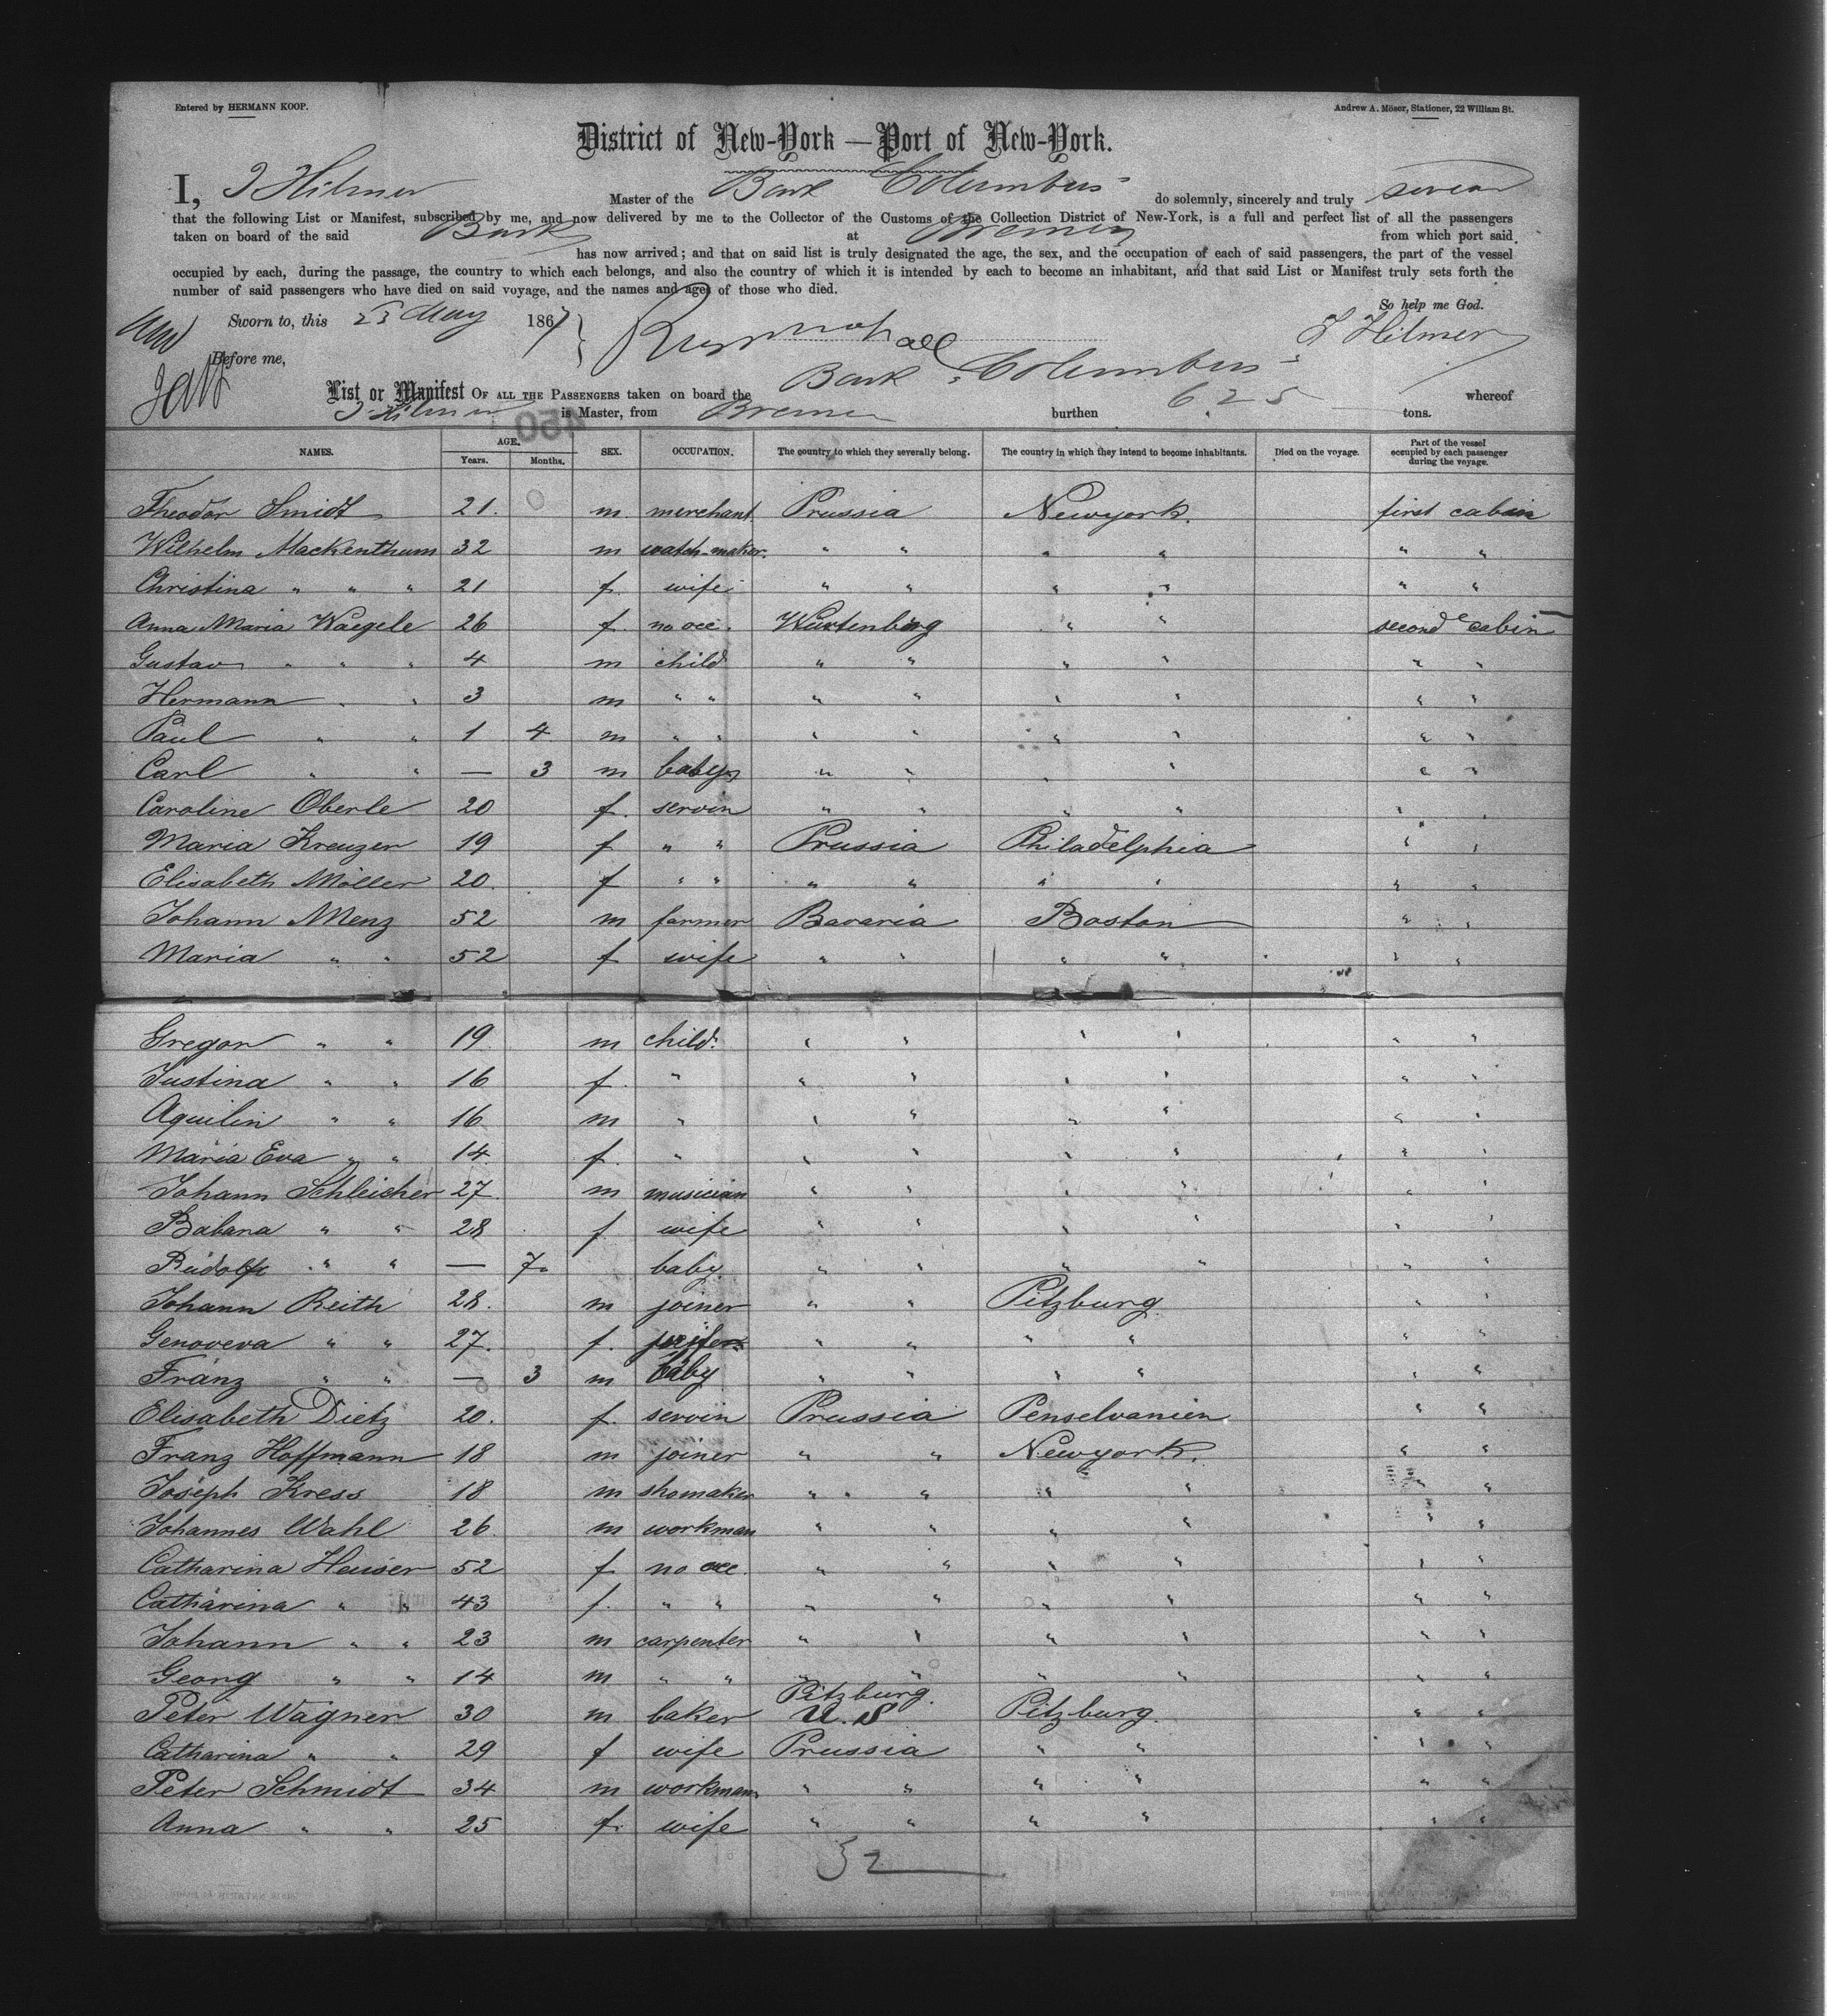 Entered by HERMANN KOOP.
Andrew A. Möser, Stationer, 22 William St.
District of New-York — Port of New-York.
I, J Hilmer Master of the Bark Columbus do solemnly, sincerely and truly swear
that the following List or Manifest, subscribed by me, and now delivered by me to the Collector of the Customs of the Collection District of New-York, is a full and perfect list of all the passengers
taken on board of the said Bark at Bremen from which port said
has now arrived; and that on said list is truly designated the age, the sex, and the occupation of each of said passengers, the part of the vessel
occupied by each, during the passage, the country to which each belongs, and also the country of which it is intended by each to become an inhabitant, and that said List or Manifest truly sets forth the
number of said passengers who have died on said voyage, and the names and ages of those who died.
So help me God.
Sworn to, this 23 May 1867 J Hilmer
Before me,
List or Manifest OF ALL THE PASSENGERS taken on board the Bark Columbus whereof
J Hilmer is Master, from Bremen burthen 625 tons.
450
NAMES. AGE. Years. Months. SEX. OCCUPATION. The country to which they severally belong. The country in which they intend to become inhabitants. Died on the voyage. Part of the vessel occupied by each passenger during the voyage.
Theodor Smidt 21. m merchant Prussia Newyork. first cabin
Wilhelm Mackenthum 32 m watch-maker. " " " " " "
Christina " " " 21 f. wife " " " " " "
Anna Maria Waegele 26 f. no occ. Wurtenberg " " second cabin
Gustav " " " 4 m child " " " " " "
Hermann " " 3 m " " " " " " " "
Paul " " 1 4 m " " " " " " " "
Carl " " — 3 m baby " " " " " "
Caroline Oberle 20 f. servin " " " " " "
Maria Kreuzer 19 f " " Prussia Philadelphia " "
Elisabeth Möller 20. f " " " " " " " "
Johann Menz 52 m farmer Bavaria Boston " "
Maria " " 52 f wife " " " " " "
Gregor " " 19 m child. " " " " " "
Justina " " 16 f. " " " " " " "
Aquilin " " 16 m " " " " " " "
Maria Eva " " 14. f. " " " " " " "
Johann Schleicher 27 m musician " " " " " "
Babana " " 28 f. wife " " " " " "
Rudolf " " — 7 baby. " " " " " "
Johann Reith 28. m joiner " " Pitzburg. " "
Genoveva " " 27. f. wife " " " " " "
Franz " " — 3 m baby " " " " " "
Elisabeth Dietz 20. f. servin Prussia Penselvanien " "
Franz Hoffmann 18 m joiner " " Newyork. " "
Joseph Kress 18 m shomaker " " " " " "
Johannes Wahl 26 m workman " " " " " "
Catharina Heuser 52 f no occ. " " " " " "
Catharina " " 43 f. " " " " " " " "
Johann " " 23 m carpenter " " " " " "
Georg " " 14 m " " " " " " " "
Pitzburg.
Peter Wagner 30 m baker U. S Pitzburg. " "
Catharina " " 29 f wife Prussia " " " "
Peter Schmidt 34 m workman " " " " " "
Anna " " 25 f. wife " " " " " "
32